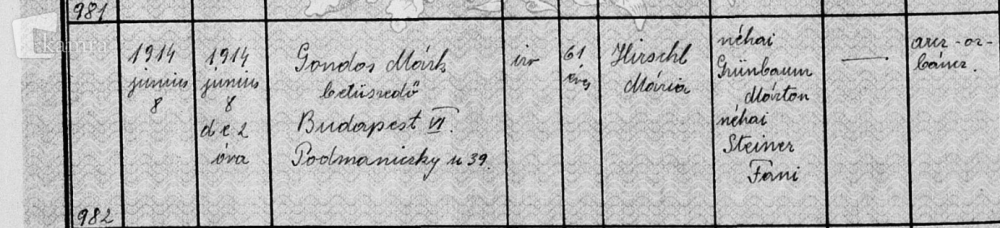 981
1914
június
8
1914
június
8
d e 2
óra
Gondos Márk
betűszedő
Budapest VI.
Podmaniczky u 39.
izr
61
éves
Hirschl
Mária
néhai
Grünbaum
Márton
néhai
Steiner
Fáni
arcz-or-
bancz.
982